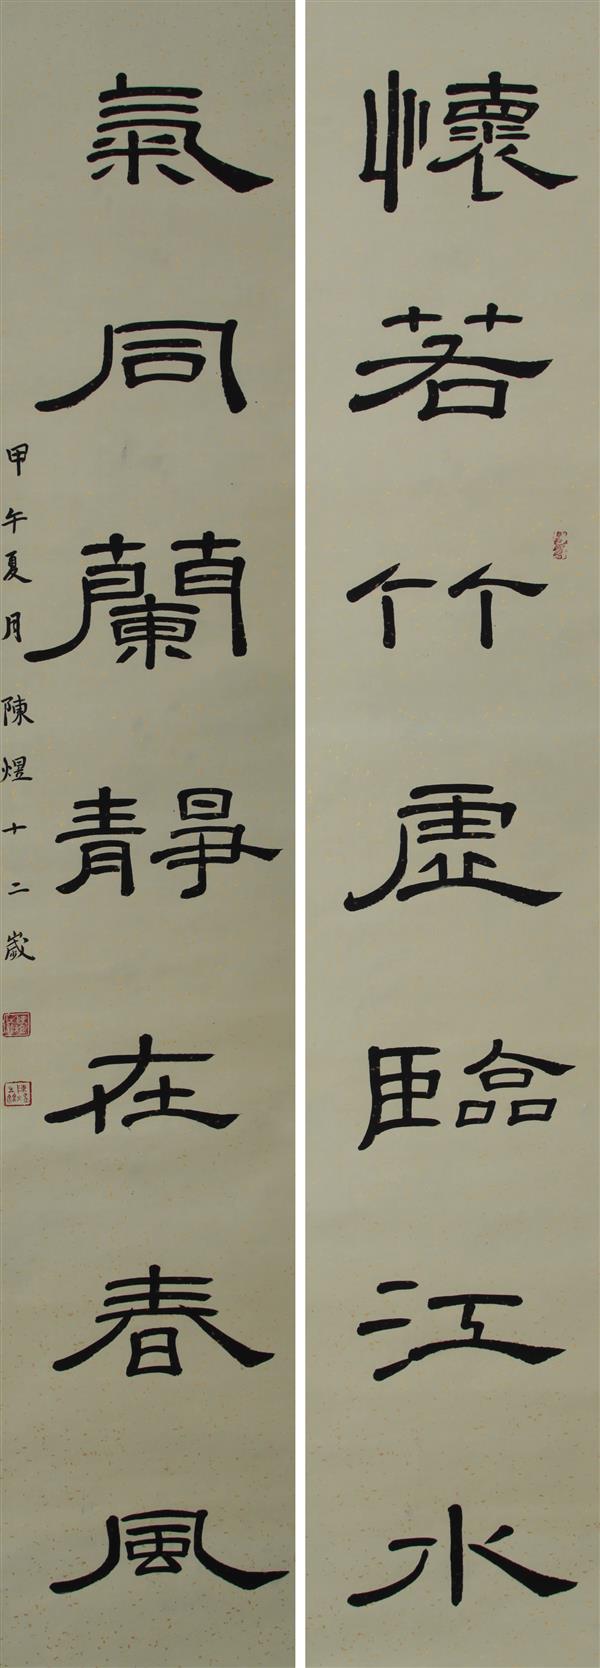 懷若竹虛臨江水
氣同蘭靜在春風
甲午夏月陳煜十二歲